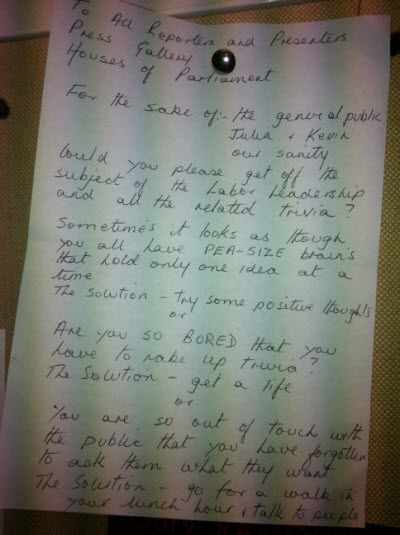 To All Reporters and Presenters
Press Gallery
Houses of Parliament
For the sake of:- the general public
Julia + Kevin
our sanity
Could you please get off the
subject of the Labor Leadership
and all the related trivia?
Sometimes it looks as though
you all have PEA-SIZE brain's
that hold only one idea at a
time
The solution - try some positive thoughts
or
Are you so BORED that you
have to make up trivia?
The Solution - get a life
or
You are so out of touch with
the public that you have forgotten
to ask them what they want
The Solution - go for a walk in
your lunch hour & talk to people